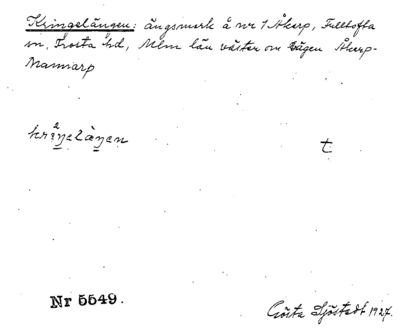 Kringelängen: ängsmark å nr 1 Åkarp, Fulltofta
sn, Frosta hd, Mlm län väster om vägen Åkarp-
Nannarp
t
Nr 5549.
Gösta Sjöstedt 1927.